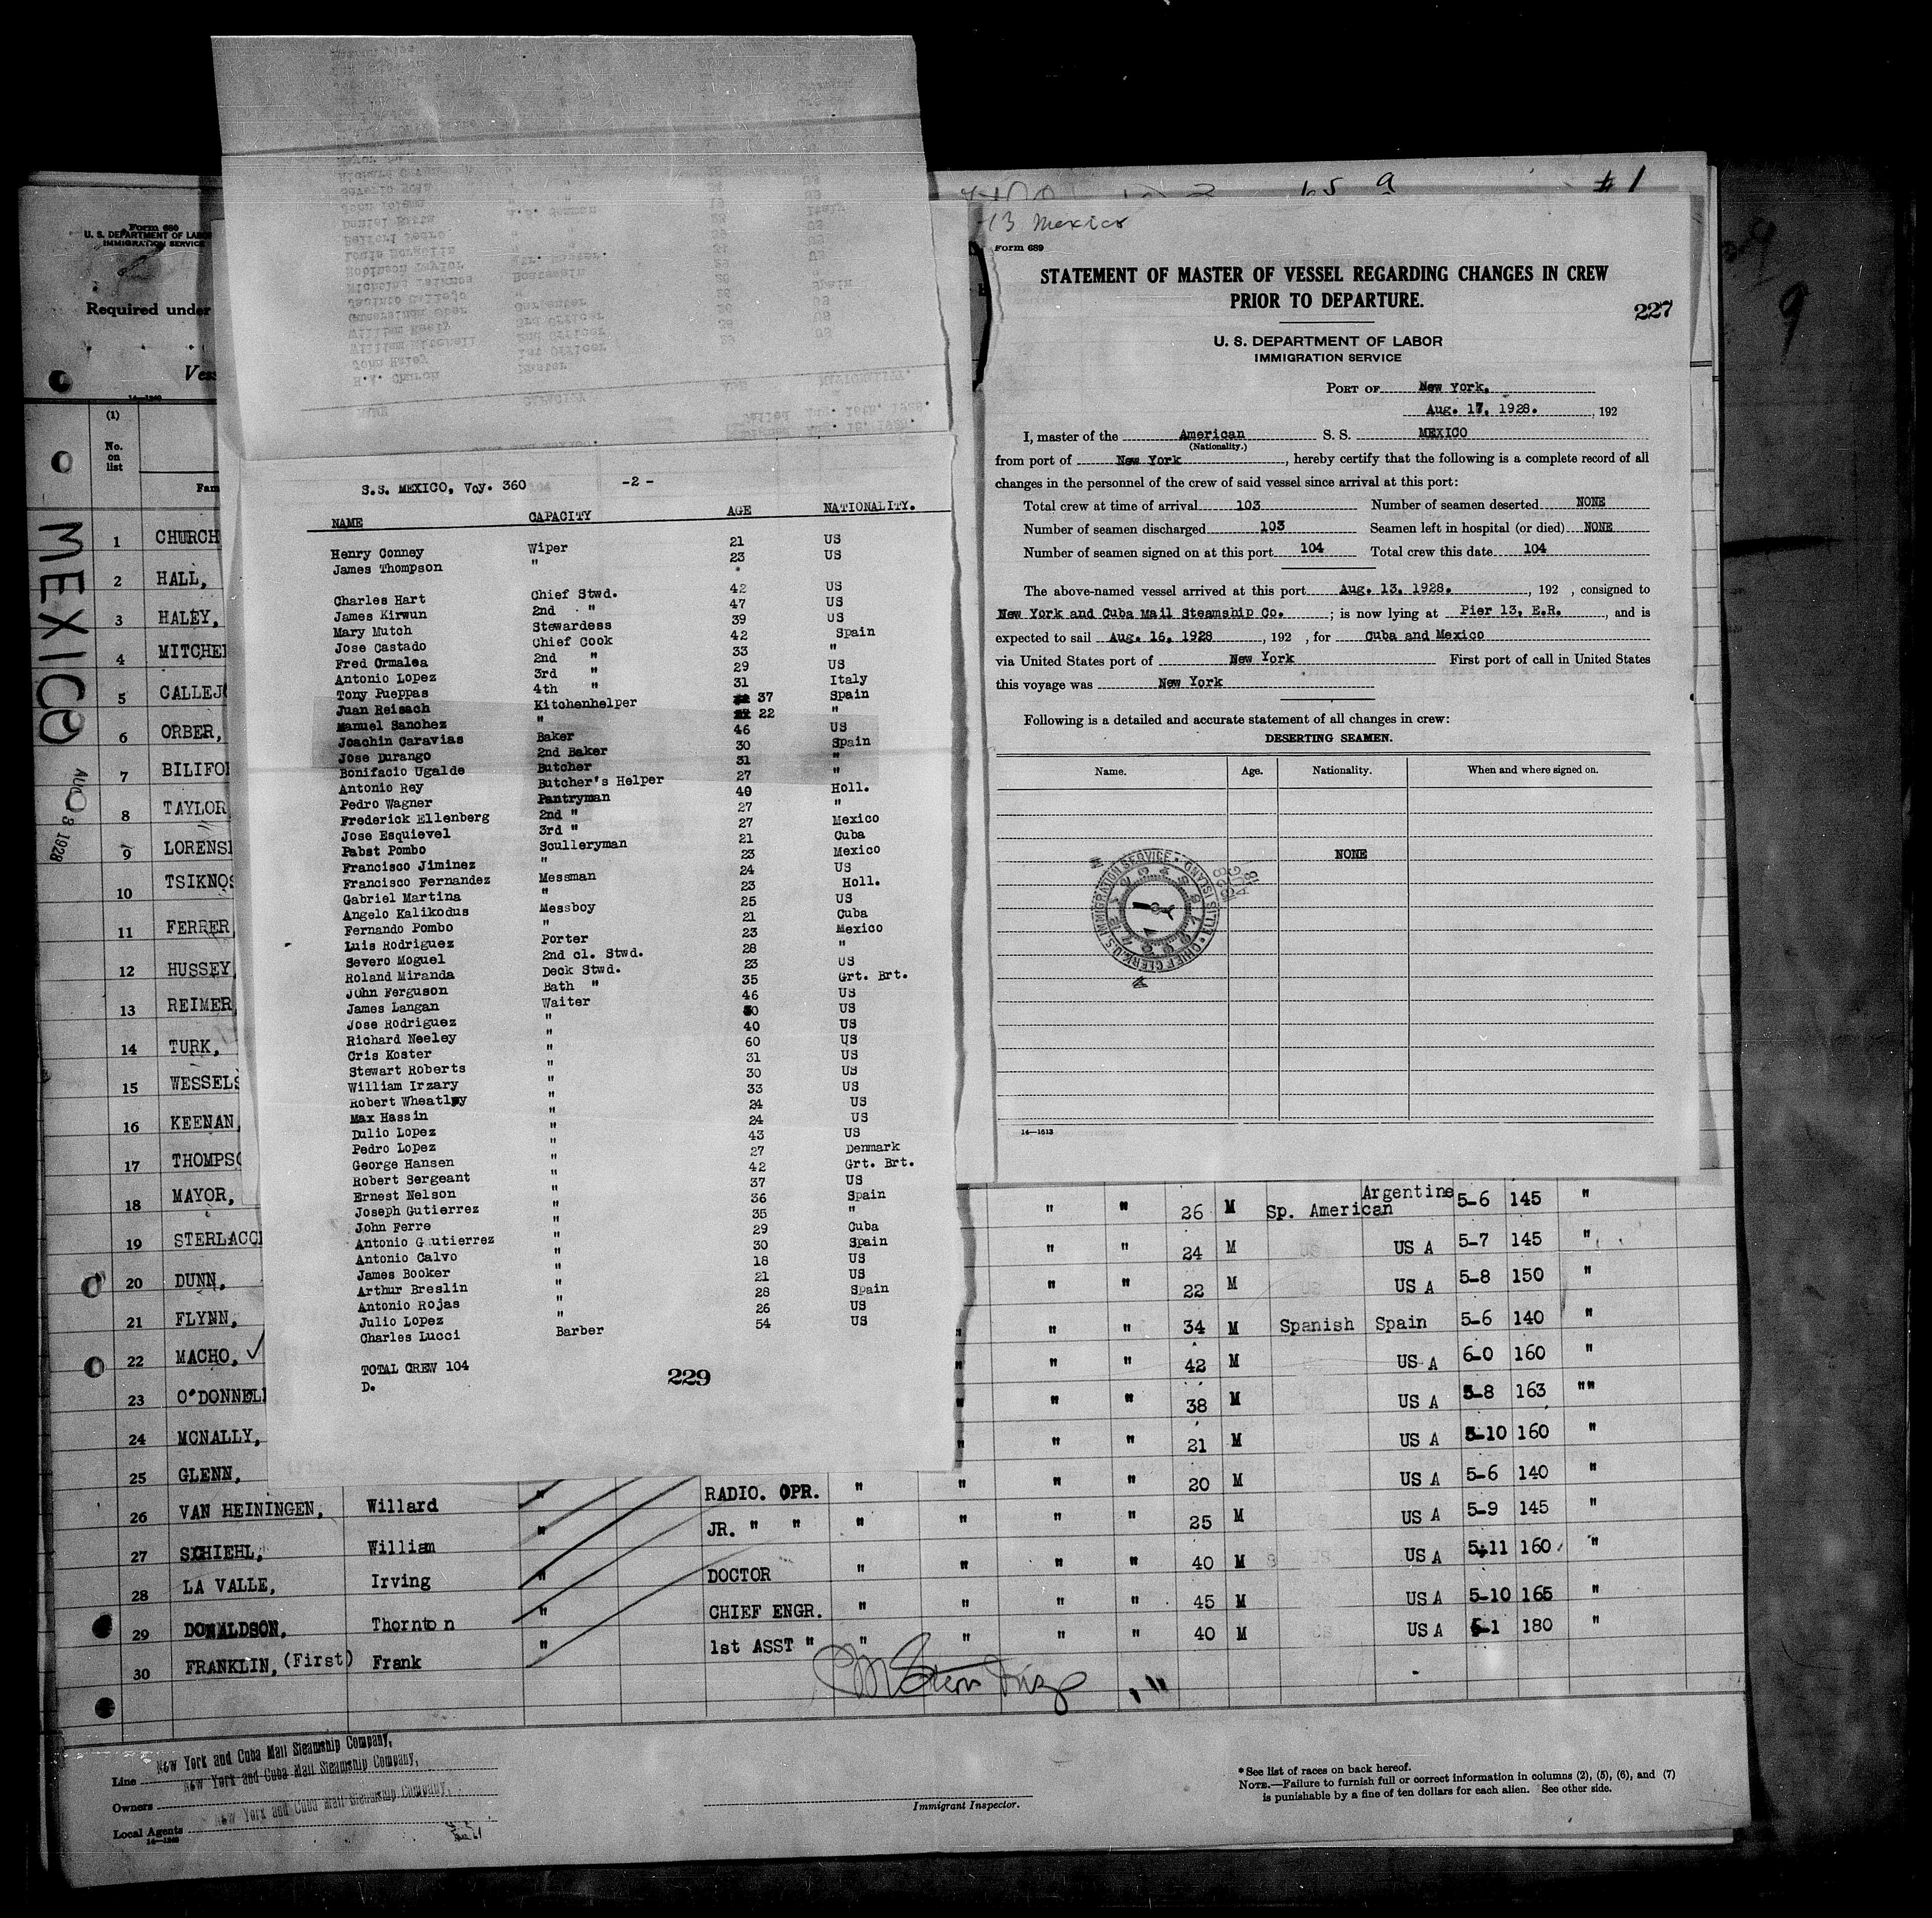 Form 680
U. S. DEPARTMENT OF LABOR
IMMIGRATION SERVICE
Required under
(1)
No. on list
MEXICO
1 CHURCH
2 HALL,
3 HALEY,
4 MITCHE
5 CALLEJ
6 ORBER,
7 BILIFO
8 TAYLOR
9 LORENS
10 TSIKNOS
11 FERRER
12 HUSSEY
13 REIMER
14 TURK,
15 WESSELS
16 KEENAN
17 THOMPSO
18 MAYOR,
19 STERLACCI
20 DUNN,
21 FLYNN,
22 MACHO,
23 O'DONNELL
24 MCNALLY,
25 GLENN,
S.S. MEXICO, Voy. 360 -2-
NAME CAPACITY AGE NATIONALITY.
Henry Conney Wiper 21 US
James Thompson " 23 US
Charles Hart Chief Stwd. 42 US
James Kirwun 2nd " 47 US
Mary Mutch Stewardess 39 US
Jose Castado Chief Cook 42 Spain
Fred Ormalea 2nd " 33 "
Antonio Lopez 3rd " 29 US
Tony Pueppas 4th " 31 Italy
Juan Reisach Kitchenhelper 37 Spain
Manuel Sanchez " 22 "
Joachin Caravias Baker 46 US
Jose Durango 2nd Baker 30 Spain
Bonifacio Ugalde Butcher 31 "
Antonio Rey Butcher's Helper 27 "
Pedro Wagner Pantryman 40 Holl.
Frederick Ellenberg 2nd " 27 "
Jose Esquievel 3rd " 27 Mexico
Pabst Pombo Sculleryman 21 Cuba
Francisco Jiminez " 23 Mexico
Francisco Fernandez Messman 24 US
Gabriel Martina " 23 Holl.
Angelo Kalikodus Messboy 25 US
Fernando Pombo " 21 Cuba
Luis Rodriguez Porter 23 Mexico
Severo Moguel 2nd cl. Stwd. 28 "
Roland Miranda Deck Stwd. 23 US
John Ferguson Bath " 35 Grt. Brt.
James Langan Waiter 46 US
Jose Rodriguez " 30 US
Richard Neeley " 40 US
Cris Koster " 60 US
Stewart Roberts " 31 US
William Irzary " 30 US
Robert Wheatley " 33 US
Max Hassin " 24 US
Dulio Lopez " 24 US
Pedro Lopez " 43 US
George Hansen " 27 Denmark
Robert Sergeant " 42 Grt. Brt.
Ernest Nelson " 37 US
Joseph Gutierrez " 36 Spain
John Ferre " 35 "
Antonio Gutierrez " 29 Cuba
Antonio Calvo " 30 Spain
James Booker " 18 US
Arthur Breslin " 21 US
Antonio Rojas " 28 Spain
Julio Lopez " 26 US
Charles Lucci Barber 54 US
TOTAL CREW 104
D.
229
#1
13 Mexico
Form 689
STATEMENT OF MASTER OF VESSEL REGARDING CHANGES IN CREW
PRIOR TO DEPARTURE.
227
U. S. DEPARTMENT OF LABOR
IMMIGRATION SERVICE
PORT OF New York.
Aug. 17, 1928. , 192
I, master of the American S. S. MEXICO
(Nationality.)
from port of New York , hereby certify that the following is a complete record of all
changes in the personnel of the crew of said vessel since arrival at this port:
Total crew at time of arrival 103 Number of seamen deserted NONE
Number of seamen discharged 103 Seamen left in hospital (or died) NONE
Number of seamen signed on at this port 104 Total crew this date 104
The above-named vessel arrived at this port Aug. 13, 1928. , 192 , consigned to
New York and Cuba Mail Steamship Co. ; is now lying at Pier 13, E.R. , and is
expected to sail Aug. 16, 1928 , 192 , for Cuba and Mexico
via United States port of New York First port of call in United States
this voyage was New York
Following is a detailed and accurate statement of all changes in crew:
DESERTING SEAMEN.
Name. Age. Nationality. When and where signed on.
NONE
CHIEF CLERK, U.S. IMMIGRATION SERVICE · ELLIS ISLAND
14—1613
9
" " 26 M Sp. American Argentine 5-6 145 "
" " 24 M US A 5-7 145 "
" " 22 M US A 5-8 150 "
" " 34 M Spanish Spain 5-6 140 "
" " 42 M US A 6-0 160 "
" " 38 M US A 5-8 163 ""
" " 21 M US A 5-10 160 "
" " 20 M US A 5-6 140 "
26 VAN HEININGEN, Willard " RADIO. OPR. " " " " 25 M US A 5-9 145 "
27 SCHIEHL, William " JR. " " " " " " 40 M US A 5-11 160 "
28 LA VALLE, Irving " DOCTOR " " " " 45 M US A 5-10 165 "
29 DONALDSON, Thornton " CHIEF ENGR. " " " " 40 M US A 5-1 180 "
30 FRANKLIN, (First) Frank " 1st ASST " " " " "
Line New York and Cuba Mail Steamship Company,
Owners New York and Cuba Mail Steamship Company,
Local Agents New York and Cuba Mail Steamship Company,
14—1240
Immigrant Inspector.
* See list of races on back hereof.
NOTE.—Failure to furnish full or correct information in columns (2), (5), (6), and (7)
is punishable by a fine of ten dollars for each alien. See other side.